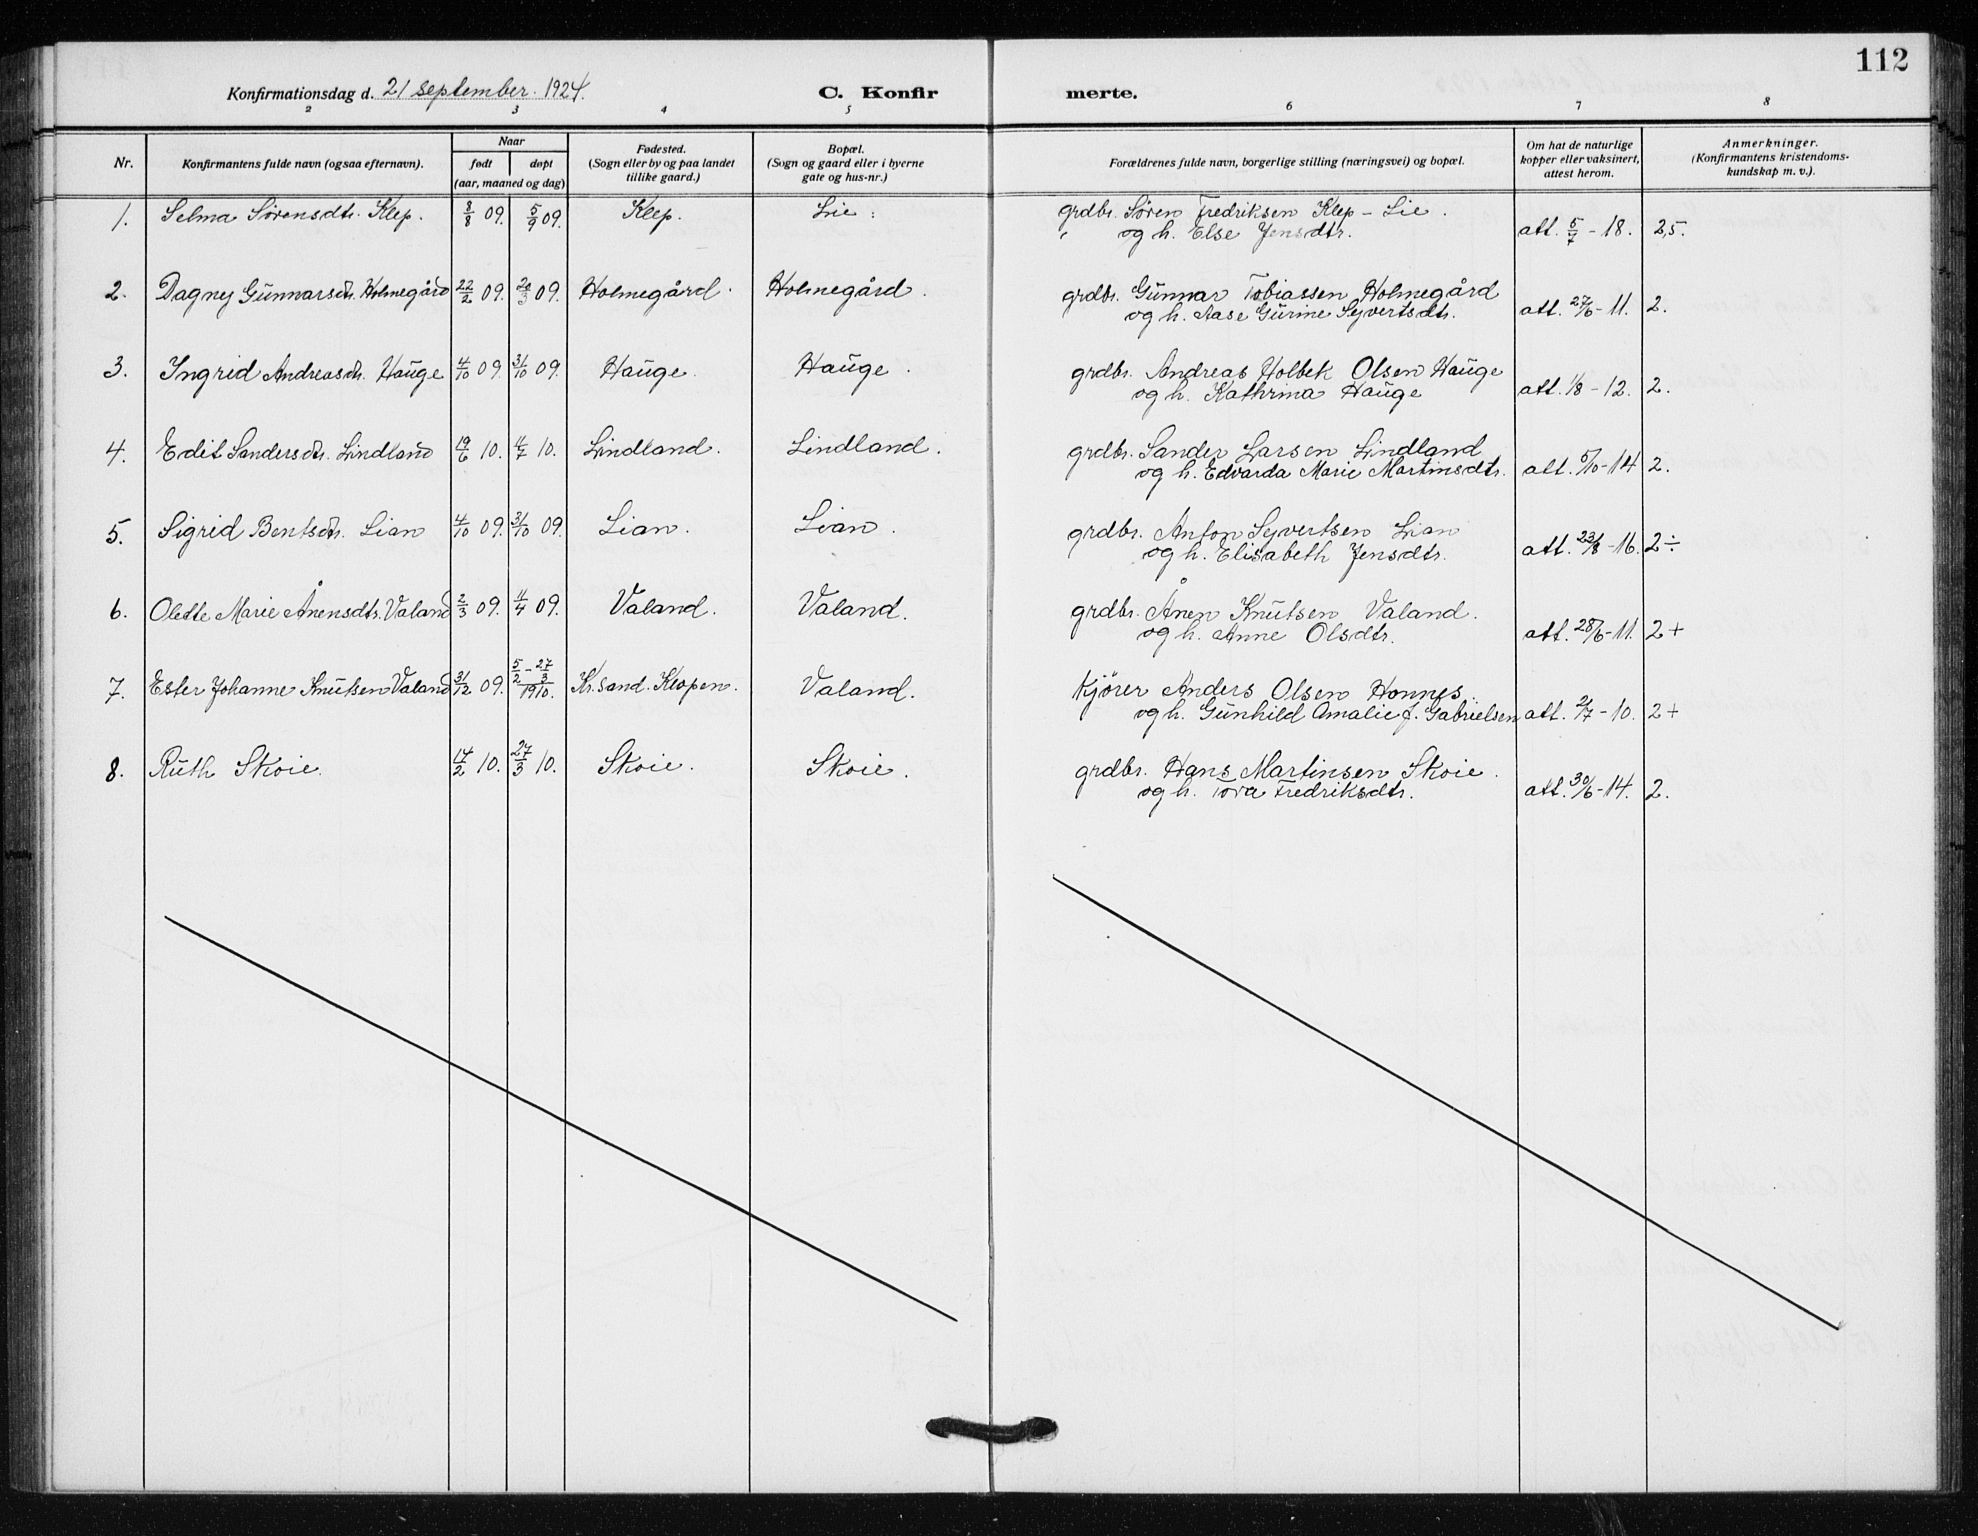 112
Konfirmationsdag d. 21 september. 1924.
C. Konfirmerte.
2 3 4 5 6 7 8
Nr.
Konfirmantens fulde navn (ogsaa efternavn).
Naar
født døpt
(aar, maaned og dag)
Fødested.
(Sogn eller by og paa landet
tillike gaard.)
Bopæl.
(Sogn og gaard eller i byerne
gate og hus-nr.)
Forældrenes fulde navn, borgerlige stilling (næringsvei) og bopæl.
Om hat de naturlige
kopper eller vaksinert,
attest herom.
Anmerkninger.
(Konfirmantens kristendoms-
kundskap m. v.).
1. Selma Sørensdtr. Klep. 8/8 09. 5/9 09. Klep. Lie. grdbr. Søren Fredriksen Klep - Lie.
og h. Else Jensdtr. att. 5/7 - 18. 2,5.
2. Dagny Gunnarsdtr. Holmegård 22/2 09. 20/3 09. Holmegård. Holmegård. grdbr. Gunnar Tobiassen Holmegård
og h. Aase Gurine Syvertsdtr. att. 27/6 - 11. 2.
3. Ingrid Andreasdtr. Hauge 4/10 09. 31/10 09. Hauge. Hauge. grdbr. Andreas Holbek Olsen Hauge
og h. Kathrina Hauge att. 1/8 - 12. 2.
4. Edit Sandersdtr. Lindland 19/6 10. 11/7 10. Lindland. Lindland. grdbr. Sander Larsen Lindland
og h. Edvarda Marie Martinsdtr. att. 5/10 - 14 2.
5. Sigrid Bentsdtr. Lian 4/10 09. 31/10 09. Lian. Lian. grdbr. Anton Syvertsen Lian
og h. Elisabeth Jensdtr. att. 23/8 - 16. 2÷
6. Olette Marie Ånensdtr. Valand 2/3 09. 11/4 09. Valand. Valand. grdbr. Ånen Knutsen Valand.
og h. Anne Olsdtr. att. 28/6 - 11. 2+
7. Ester Johanne Knutsen Valand 31/12 09. 5/2 - 27/3 1910. Kr.sand. Klopen. Valand. Kjører Anders Olsen Honnes.
og h. Gunhild Amalie f. Gabrielsen att. 2/7 - 10. 2+
8. Ruth Skoie. 14/2 10. 27/3 10. Skoie. Skoie. grdbr. Hans Martinsen Skoie.
og h. Tora Fredriksdtr. att. 30/6 - 14. 2.